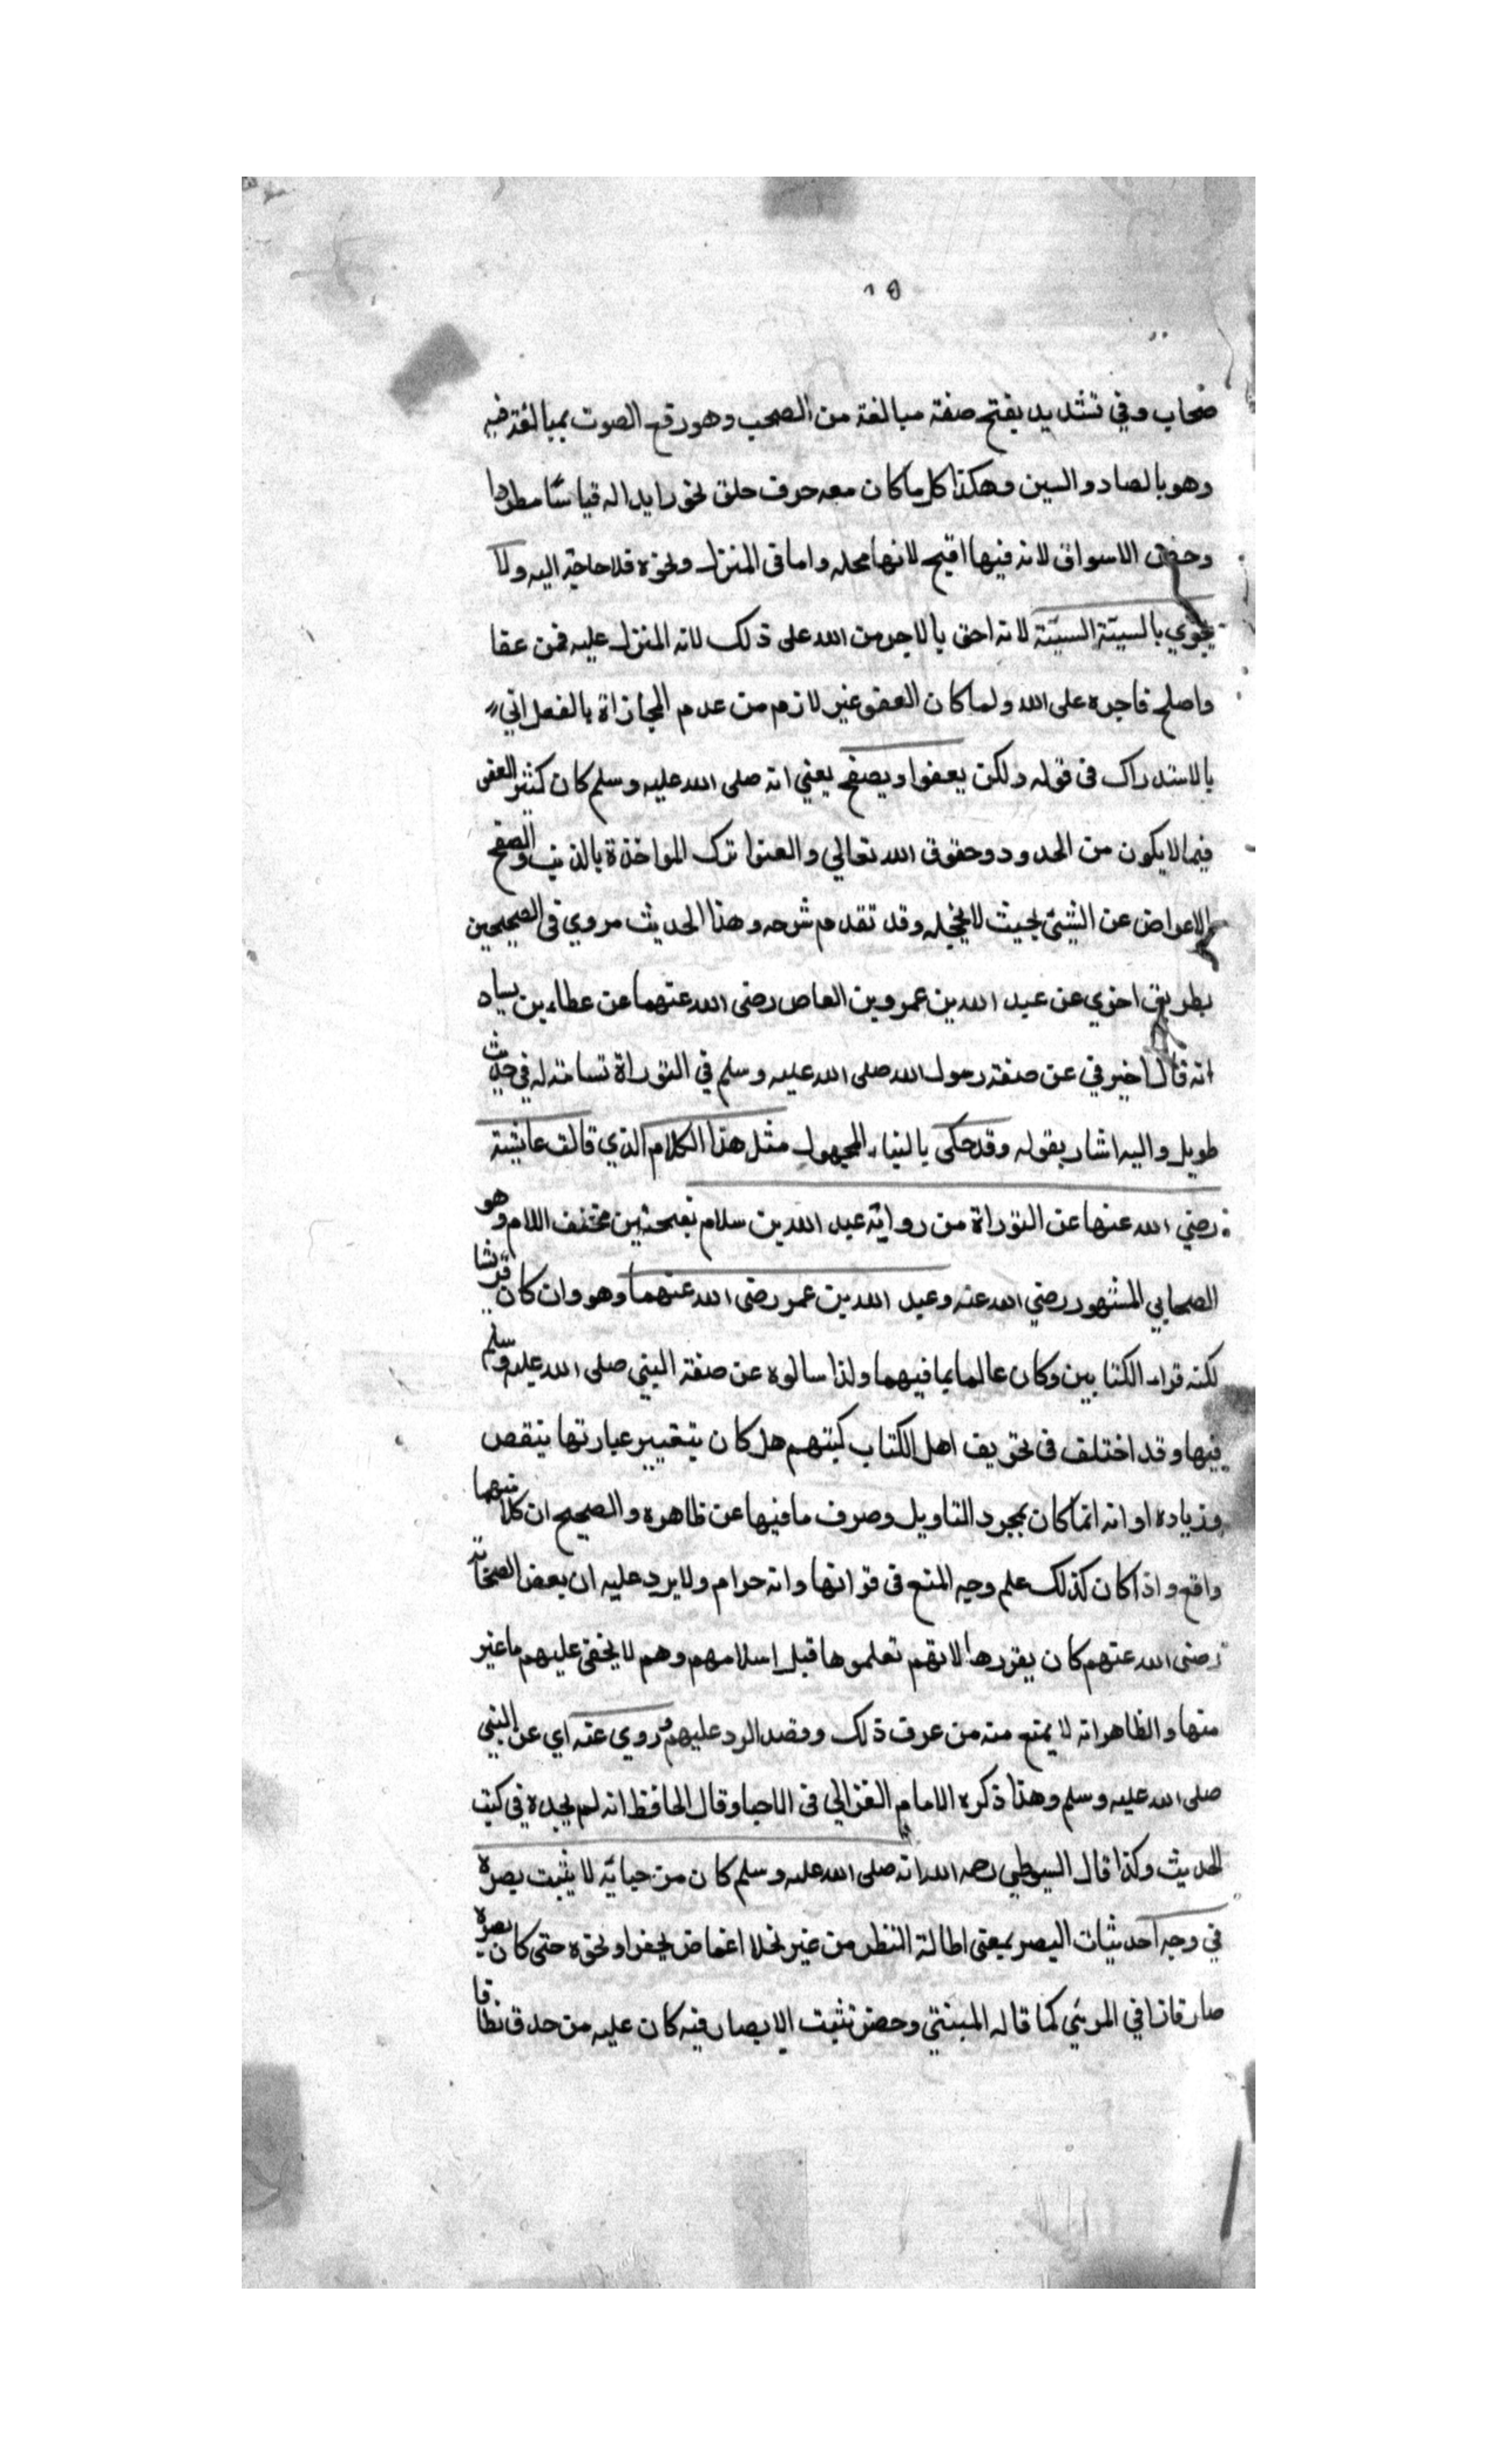 ١٥
صخاب وفي تشديد بفتح صفة مبالغة من الصخب وهو رفع الصوت بمبالغة فيه
وهو بالصاد والسين وهكذا كل ما كان معه حرف حلق نحو زايداله قياسًا مطردا
وخص الاسواق لانه فيها اقبح لانها محله واما في المنزل ونحوه فلا حاجة اليه ولا
يجزي بالسيئة السيئة لانه احق بالاجر من الله على ذلك لانه المنزل عليه فمن عفا
واصلح فاجره على الله ولما كان العفو غير لازم من عدم المجازاة بالفعل اتي
بالاستدراك في قوله ولكن يعفوا ويصفح يعني انه صلى الله عليه وسلم كان كثير العفو
فيما لا يكون من الحدود وحقوق الله تعالي والعفوا ترك المواخذة بالذنب والصفح
الاعراض عن الشئ بحيث لا يخجله وقد تقدم شرحه وهذا الحديث مروي في الصحيحين
بطريق اخري عن عبد الله بن عمرو بن العاص رضى الله عنهما عن عطاء بن يسار
انه قال اخبرني عن صفة رسول الله صلى الله عليه وسلم في التوراة في حديث
طويل واليه اشار بقوله وقد حكى بالبناء المجهول مثل هذا الكلام الذي قالت عايشة
رضي الله عنها عن التوراة من رواية عبد الله بن سلام بفتحتين مخفف اللام وهو
الصحابي المشهور رضي الله عنه وعبد الله بن عمر رضى الله عنهما وهو وان كان قرشا
لكنه قراء الكتابين وكان عالما بما فيهما ولذا سالوه عن صفة النبي صلى الله عليه وسلم
فيها وقد اختلف في تحريف اهل الكتاب كتبهم هل كان بتغيير عبارتها بنقص
وزيادة او انه انما كان بمجرد التاويل وصرف ما فيها عن ظاهره والصحيح ان كلا منهما
واقع واذا كان كذلك علم وجه المنع في قراتها وانه حرام ولا يرد عليه ان بعض الصحابة
رضى الله عنهم كان يقررها لانهم تعلموها قبل اسلامهم وهم لا يخفى عليهم ما غير
منها والظاهر انه لا يمنع منه من عرف ذلك وقصد الرد عليهم وروي عنه اي عن النبي
صلى الله عليه وسلم وهذا ذكره الامام الغزالي في الاحيا وقال الحافظ انه لم يجده في كتب
الحديث وكذا قال السيوطي رحمه الله انه صلى الله عليه وسلم كان من حيايه لا يثبت بصره
في وجه احد بثبات البصر بمعنى اطالة النظر من غير تخلل اغماض بجفن او نحوه حتى كان بصره
صار قارا في المرئي كما قاله المتنبي وخصر تثبت الابصار فيه كان عليه من حدق نطاقا